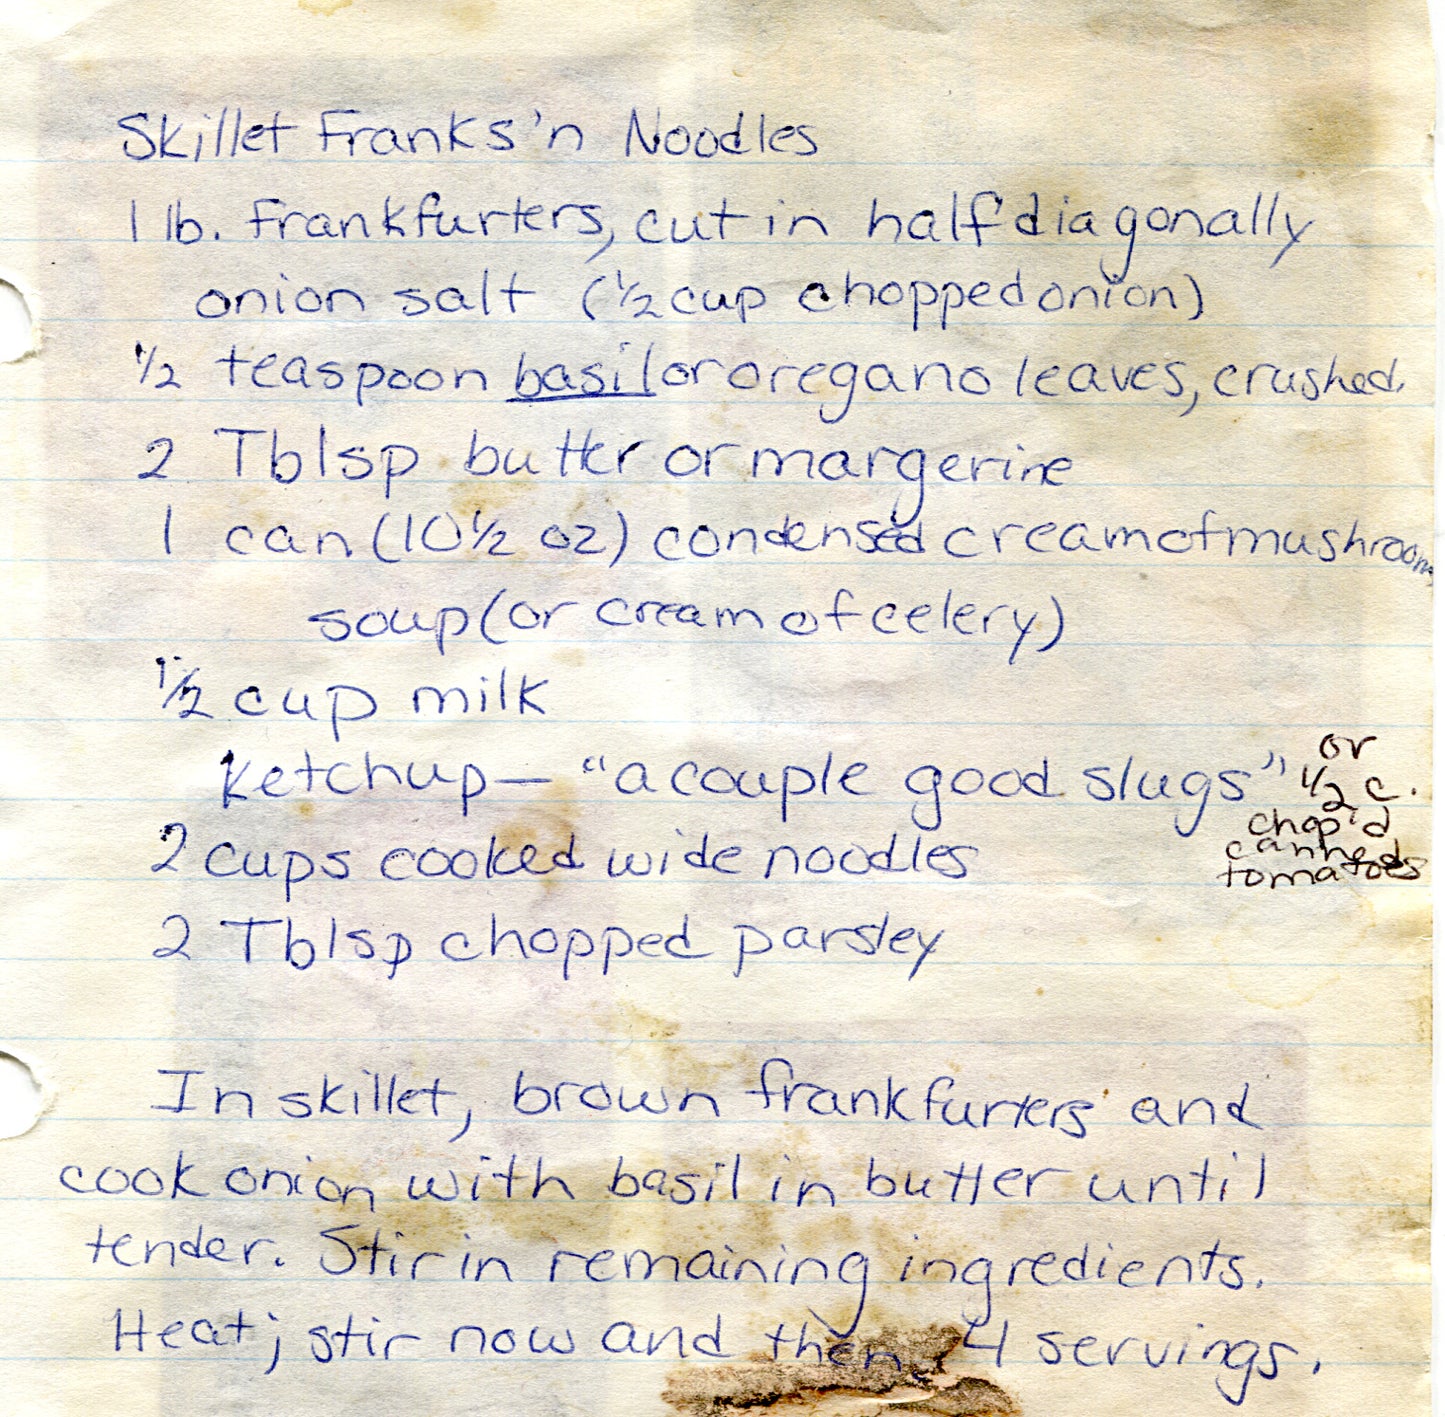 Skillet Franks 'n Noodles
1 lb. Frankfurters, cut in half diagonally
onion salt (1/2 cup chopped onion)
1/2 teaspoon basil or oregano leaves, crushed.
2 Tblsp butter or margerine
1 can (10 1/2 oz) condensed cream of mushroom
soup (or cream of celery)
1/2 cup milk
Ketchup — "a couple good slugs" or
1/2 c.
chop'd
canned
tomatoes
2 cups cooked wide noodles
2 Tblsp chopped parsley
In skillet, brown frankfurters and
cook onion with basil in butter until
tender. Stir in remaining ingredients.
Heat; stir now and then. 4 servings.